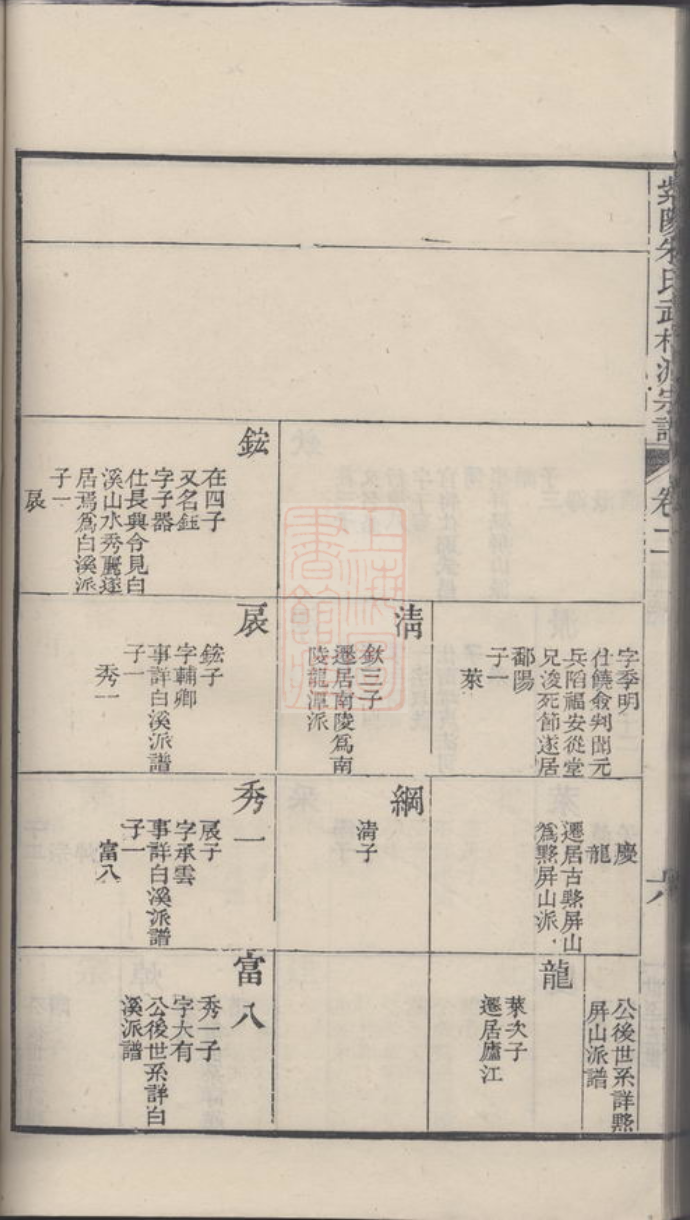 紫陽朱氏武村派宗譜
卷二
六
鋐
在四子
又名鈺
字子器
仕長興令見白
溪山水秀麗遂
居焉爲白溪派
子一
扆
字季明
仕饒僉判聞元
兵陷福安從堂
兄浚死節遂居
鄱陽
子一
萊
清
欽三子
遷居南陵爲南
陵龍潭派
扆
鋐子
字輔卿
事詳白溪派譜
子一
秀一
慶
龍
遷居古黟屏山
爲黟屏山派
綱
清子
秀一
扆子
字承雲
事詳白溪派譜
子一
富八
公後世系詳黟
屏山派譜
龍
萊次子
遷居廬江
富八
秀一子
字大有
公後世系詳白
溪派譜
上海圖書館藏